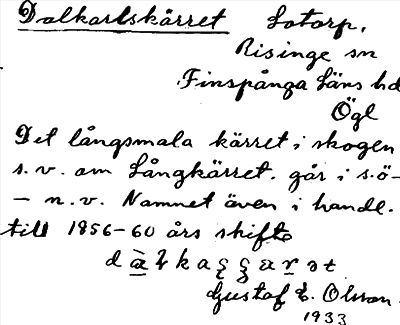 Dalkarlskärret Lotorp.
Risinge sn
Finspånga Läns hd
Ögl
Det långsmala kärret i skogen
s.v. om Långkärret. går i s.ö-
- n.v. Namnet även i handl.
till 1856-60 års skifte
Gustaf E. Olsson.
1933